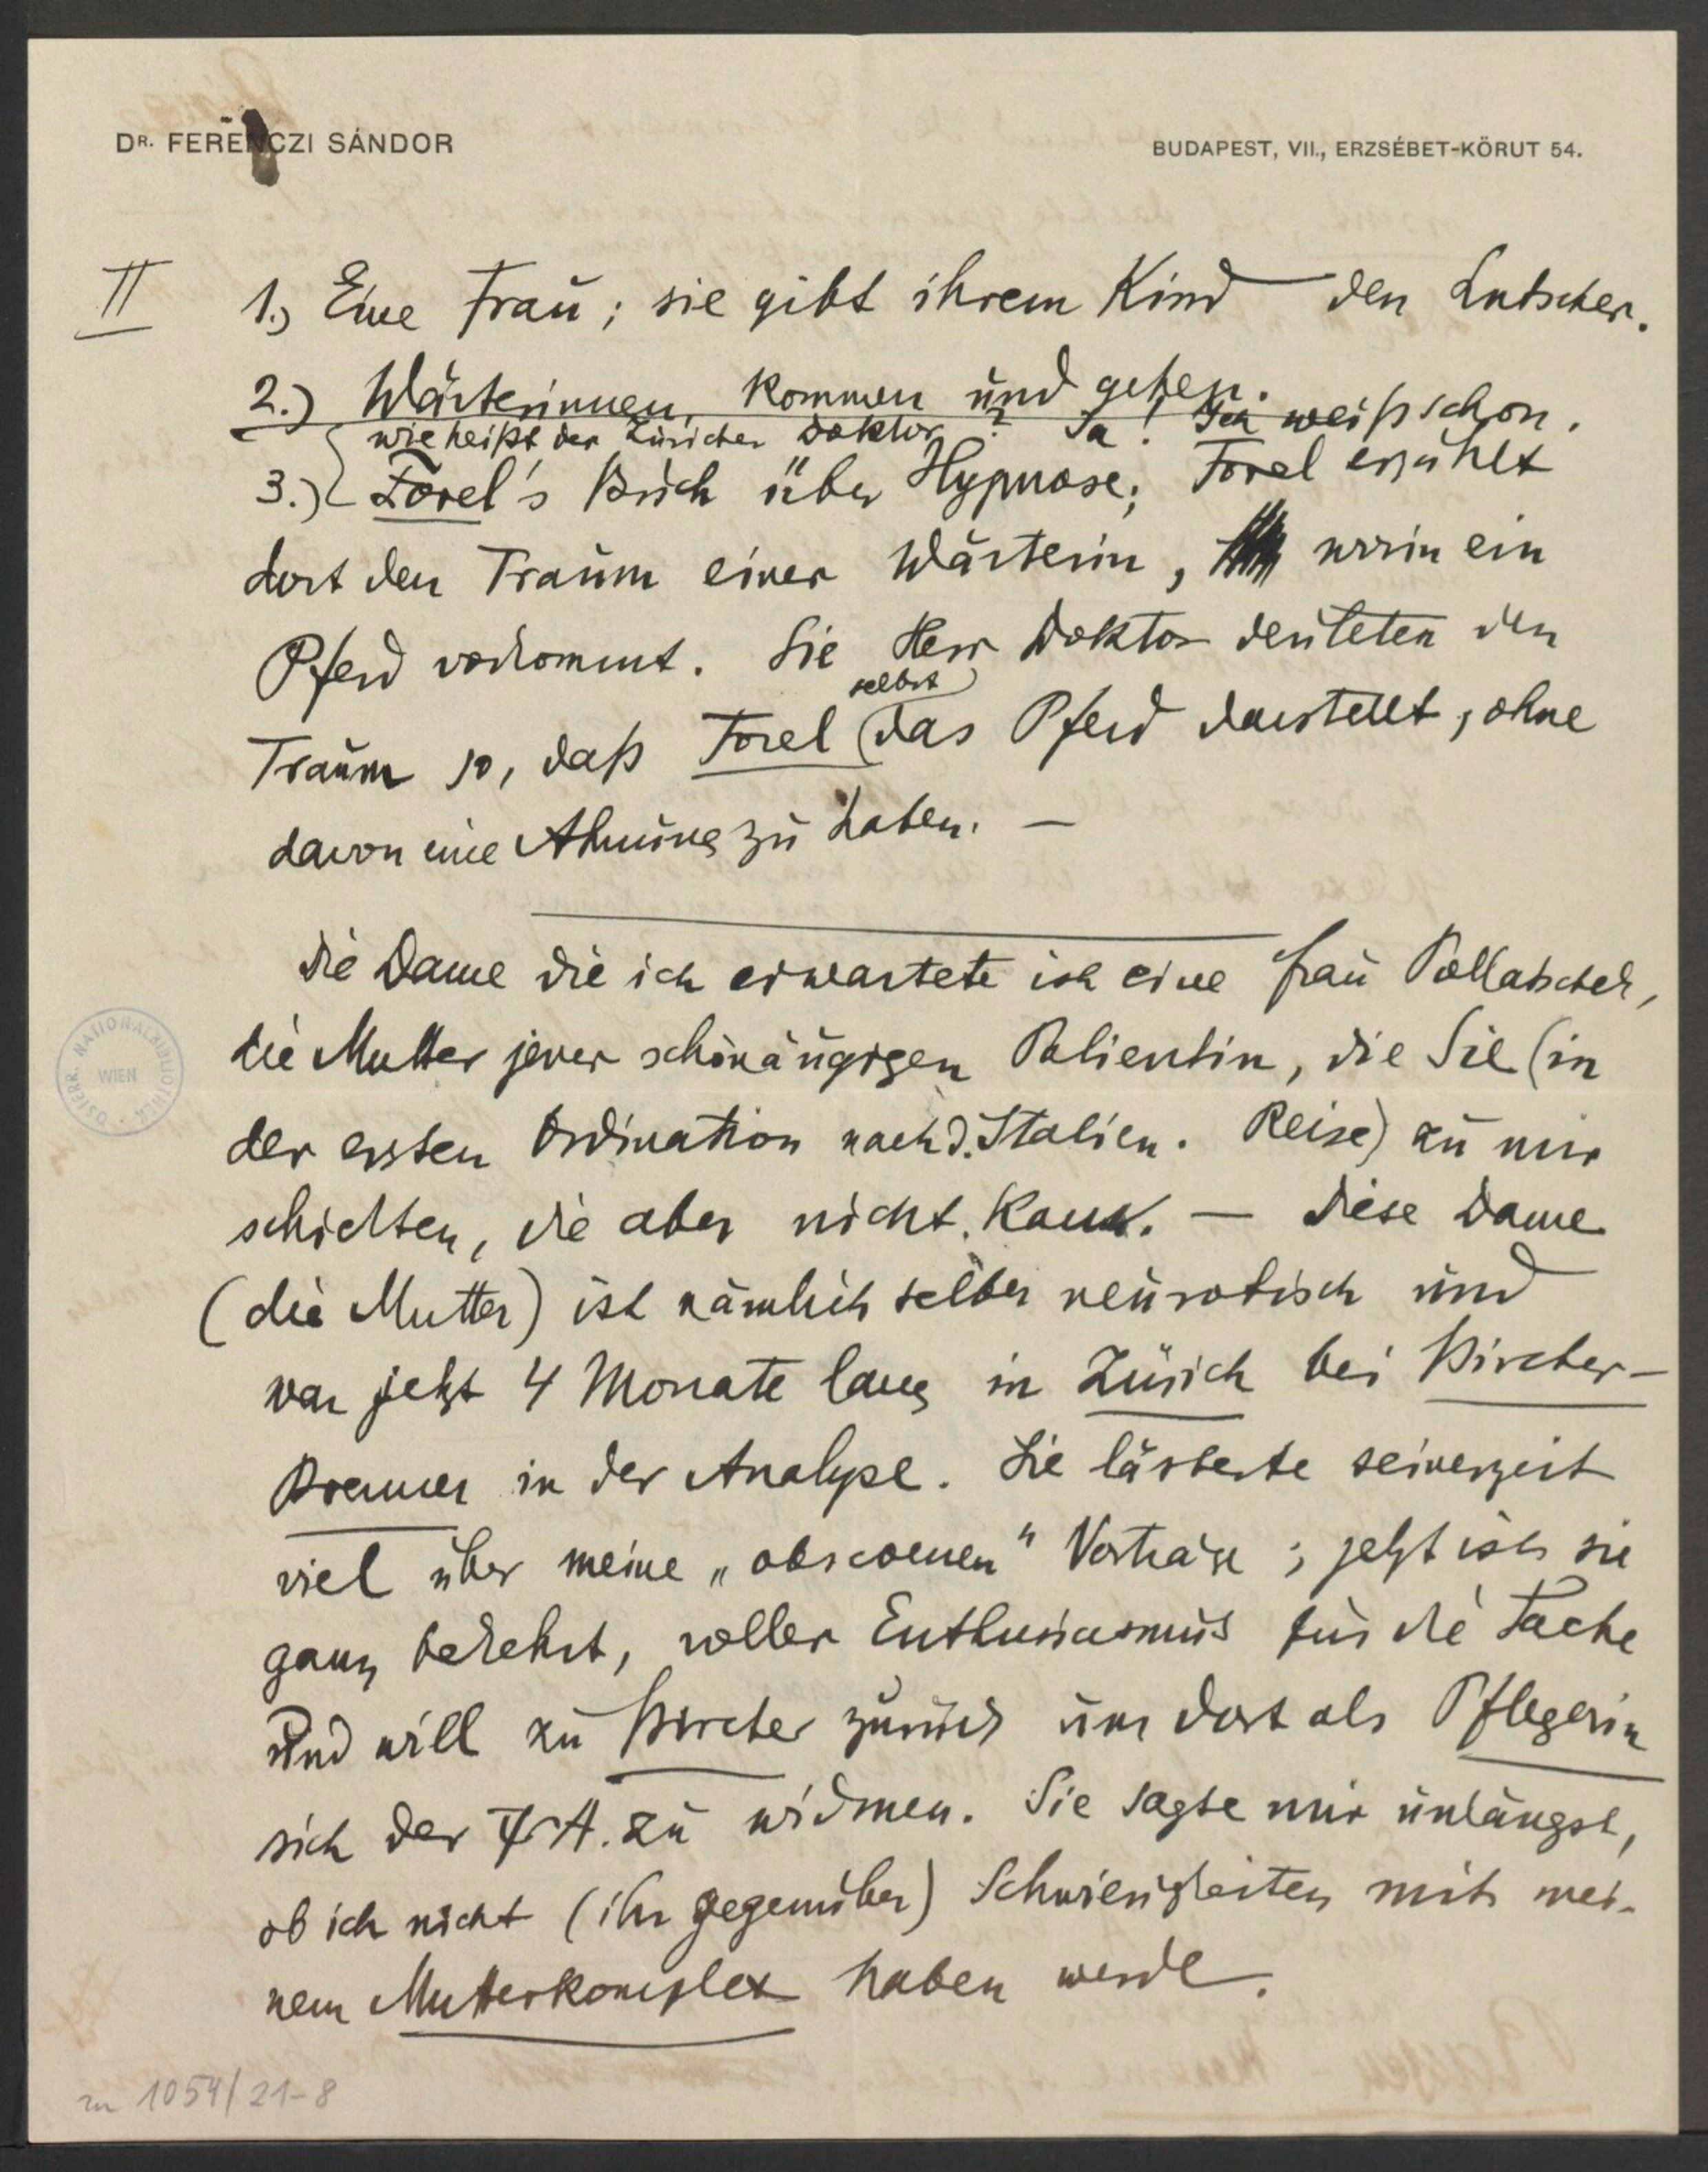 DR. FERENCZI SÁNDOR
BUDAPEST, VII., ERZSÉBET-KÖRUT 54.
II
1.) Eine Frau; sie gibt ihrem Kind den Lutscher.
2.) Wärterinnen, kommen und gehen.
wie heißt der Züricher Doktor? Ja! Ich weiß schon.
3.) Forel's Buch über Hypnose; Forel erzählt
dort den Traum einer Wärterin, worin ein
Pferd vorkommt. Sie Herr Doktor deuteten den
Traum so, daß Forel selbst das Pferd darstellt, ohne
davon eine Ahnung zu haben. —
Die Dame die ich erwartete ist eine Frau Pollatschek,
die Mutter jener schönäugigen Patientin, die Sie (in
der ersten Ordination nach d. Italien. Reise) zu mir
schickten, die aber nicht kam. — Diese Dame
(die Mutter) ist nämlich selber neurotisch und
war jetzt 4 Monate lang in Zürich bei Bircher-
Brenner in der Analyse. Sie lästerte seinerzeit
viel über meine „obscoenen" Vorträge; jetzt ist sie
ganz bekehrt, voller Enthusiasmus für die Sache
und will zu Bircher zurück um dort als Pflegerin
sich der ΨA. zu widmen. Sie sagte mir unlängst,
ob ich nicht (ihr gegenüber) Schwierigkeiten mit mei-
nem Mutterkomplex haben werde.
ÖSTERR. NATIONALBIBLIOTHEK
WIEN
zu 1054/21-8